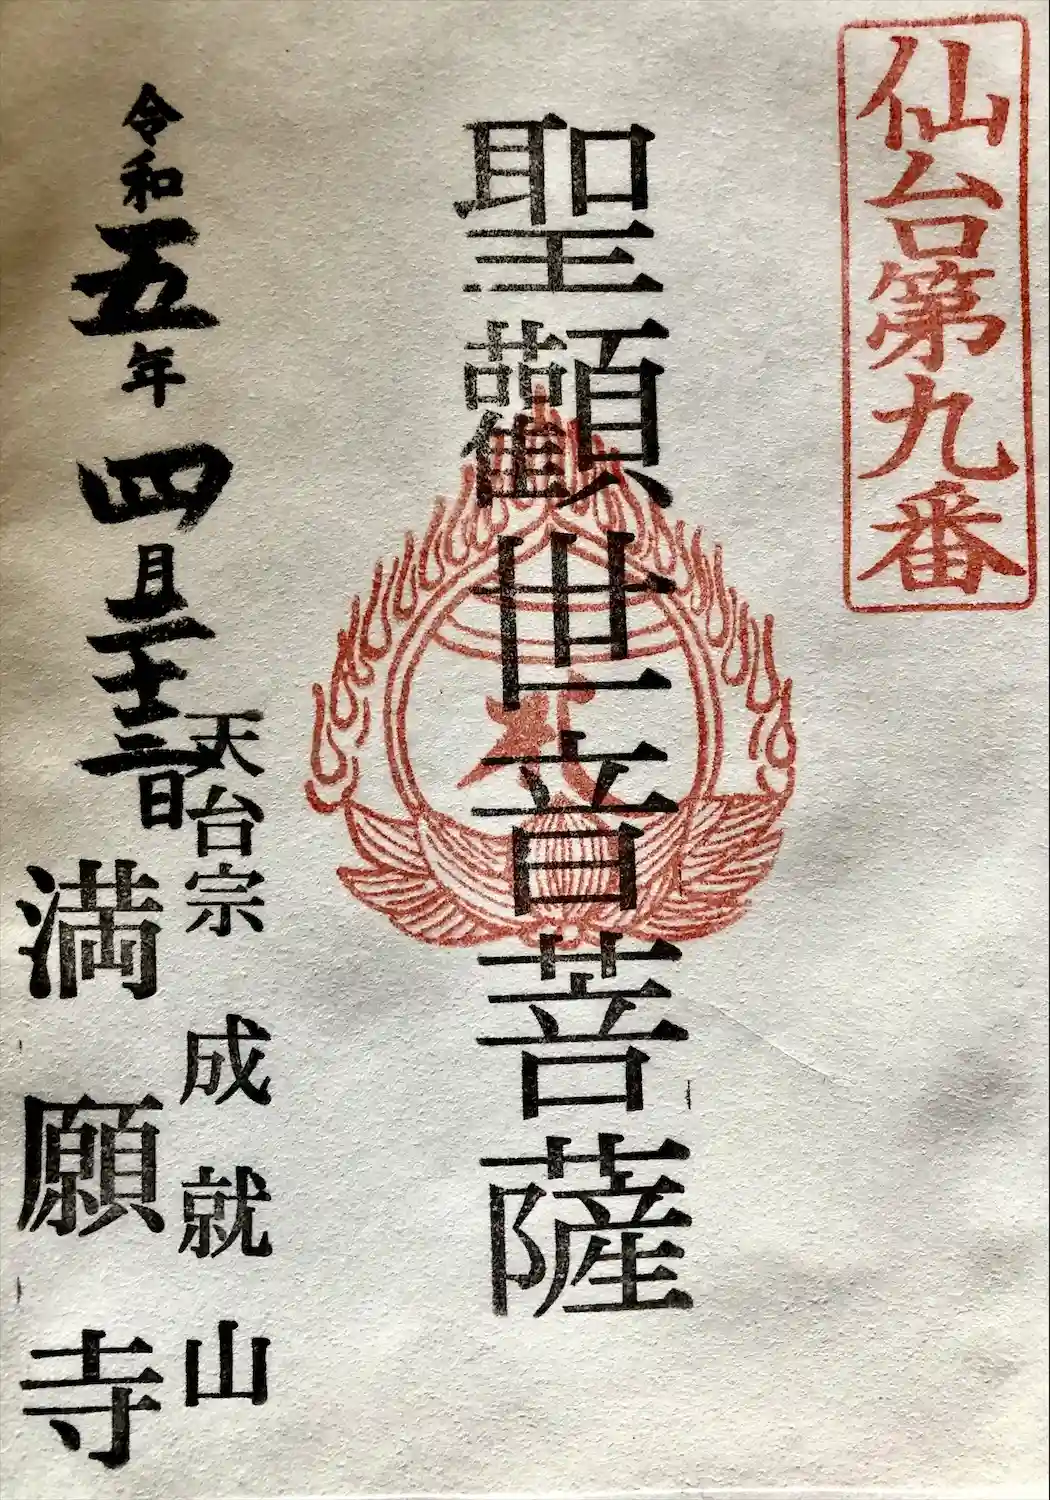 仙台第九番
聖顴世音菩薩
天台宗 成就山
令和五年四月二十三日
満願寺